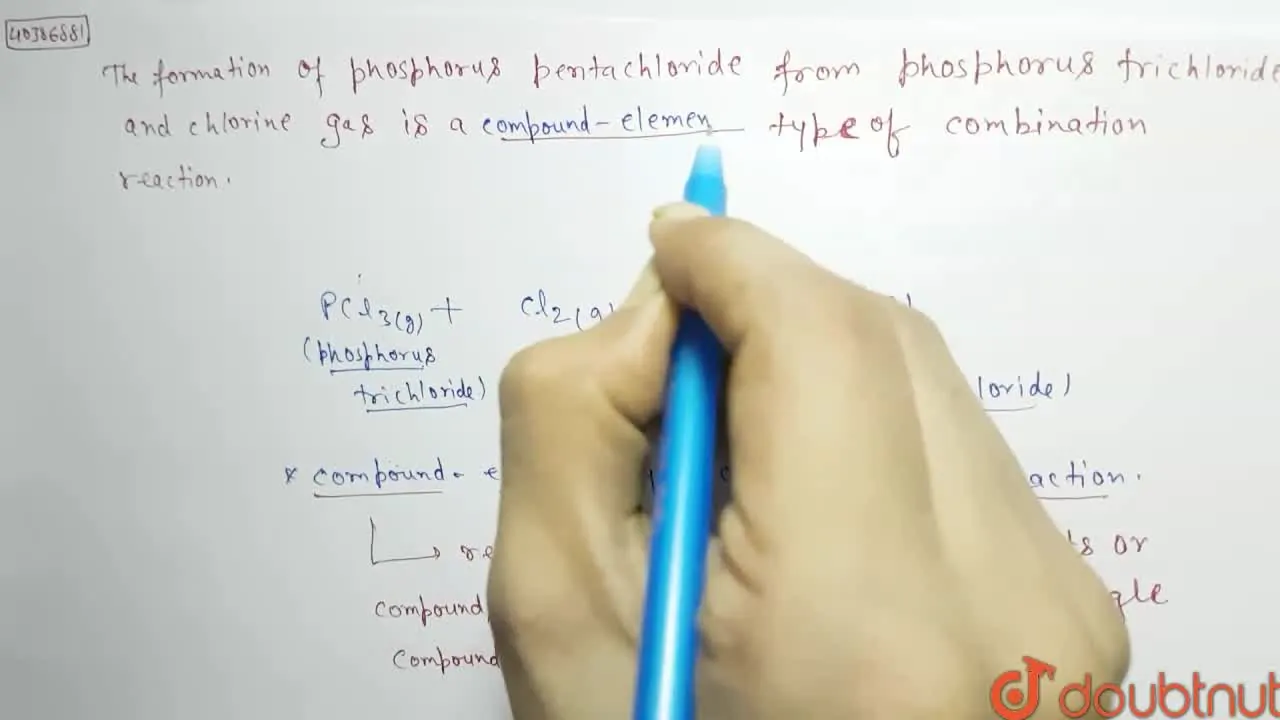 40386881
The formation of phosphorus pentachloride from phosphorus trichloride
and chlorine gas is a compound-elemen type of combination
reaction.
PCl3(g) + Cl2(g)
(phosphorus
trichloride) loride)
* compound- action.
or
compound
compound
doubtnut